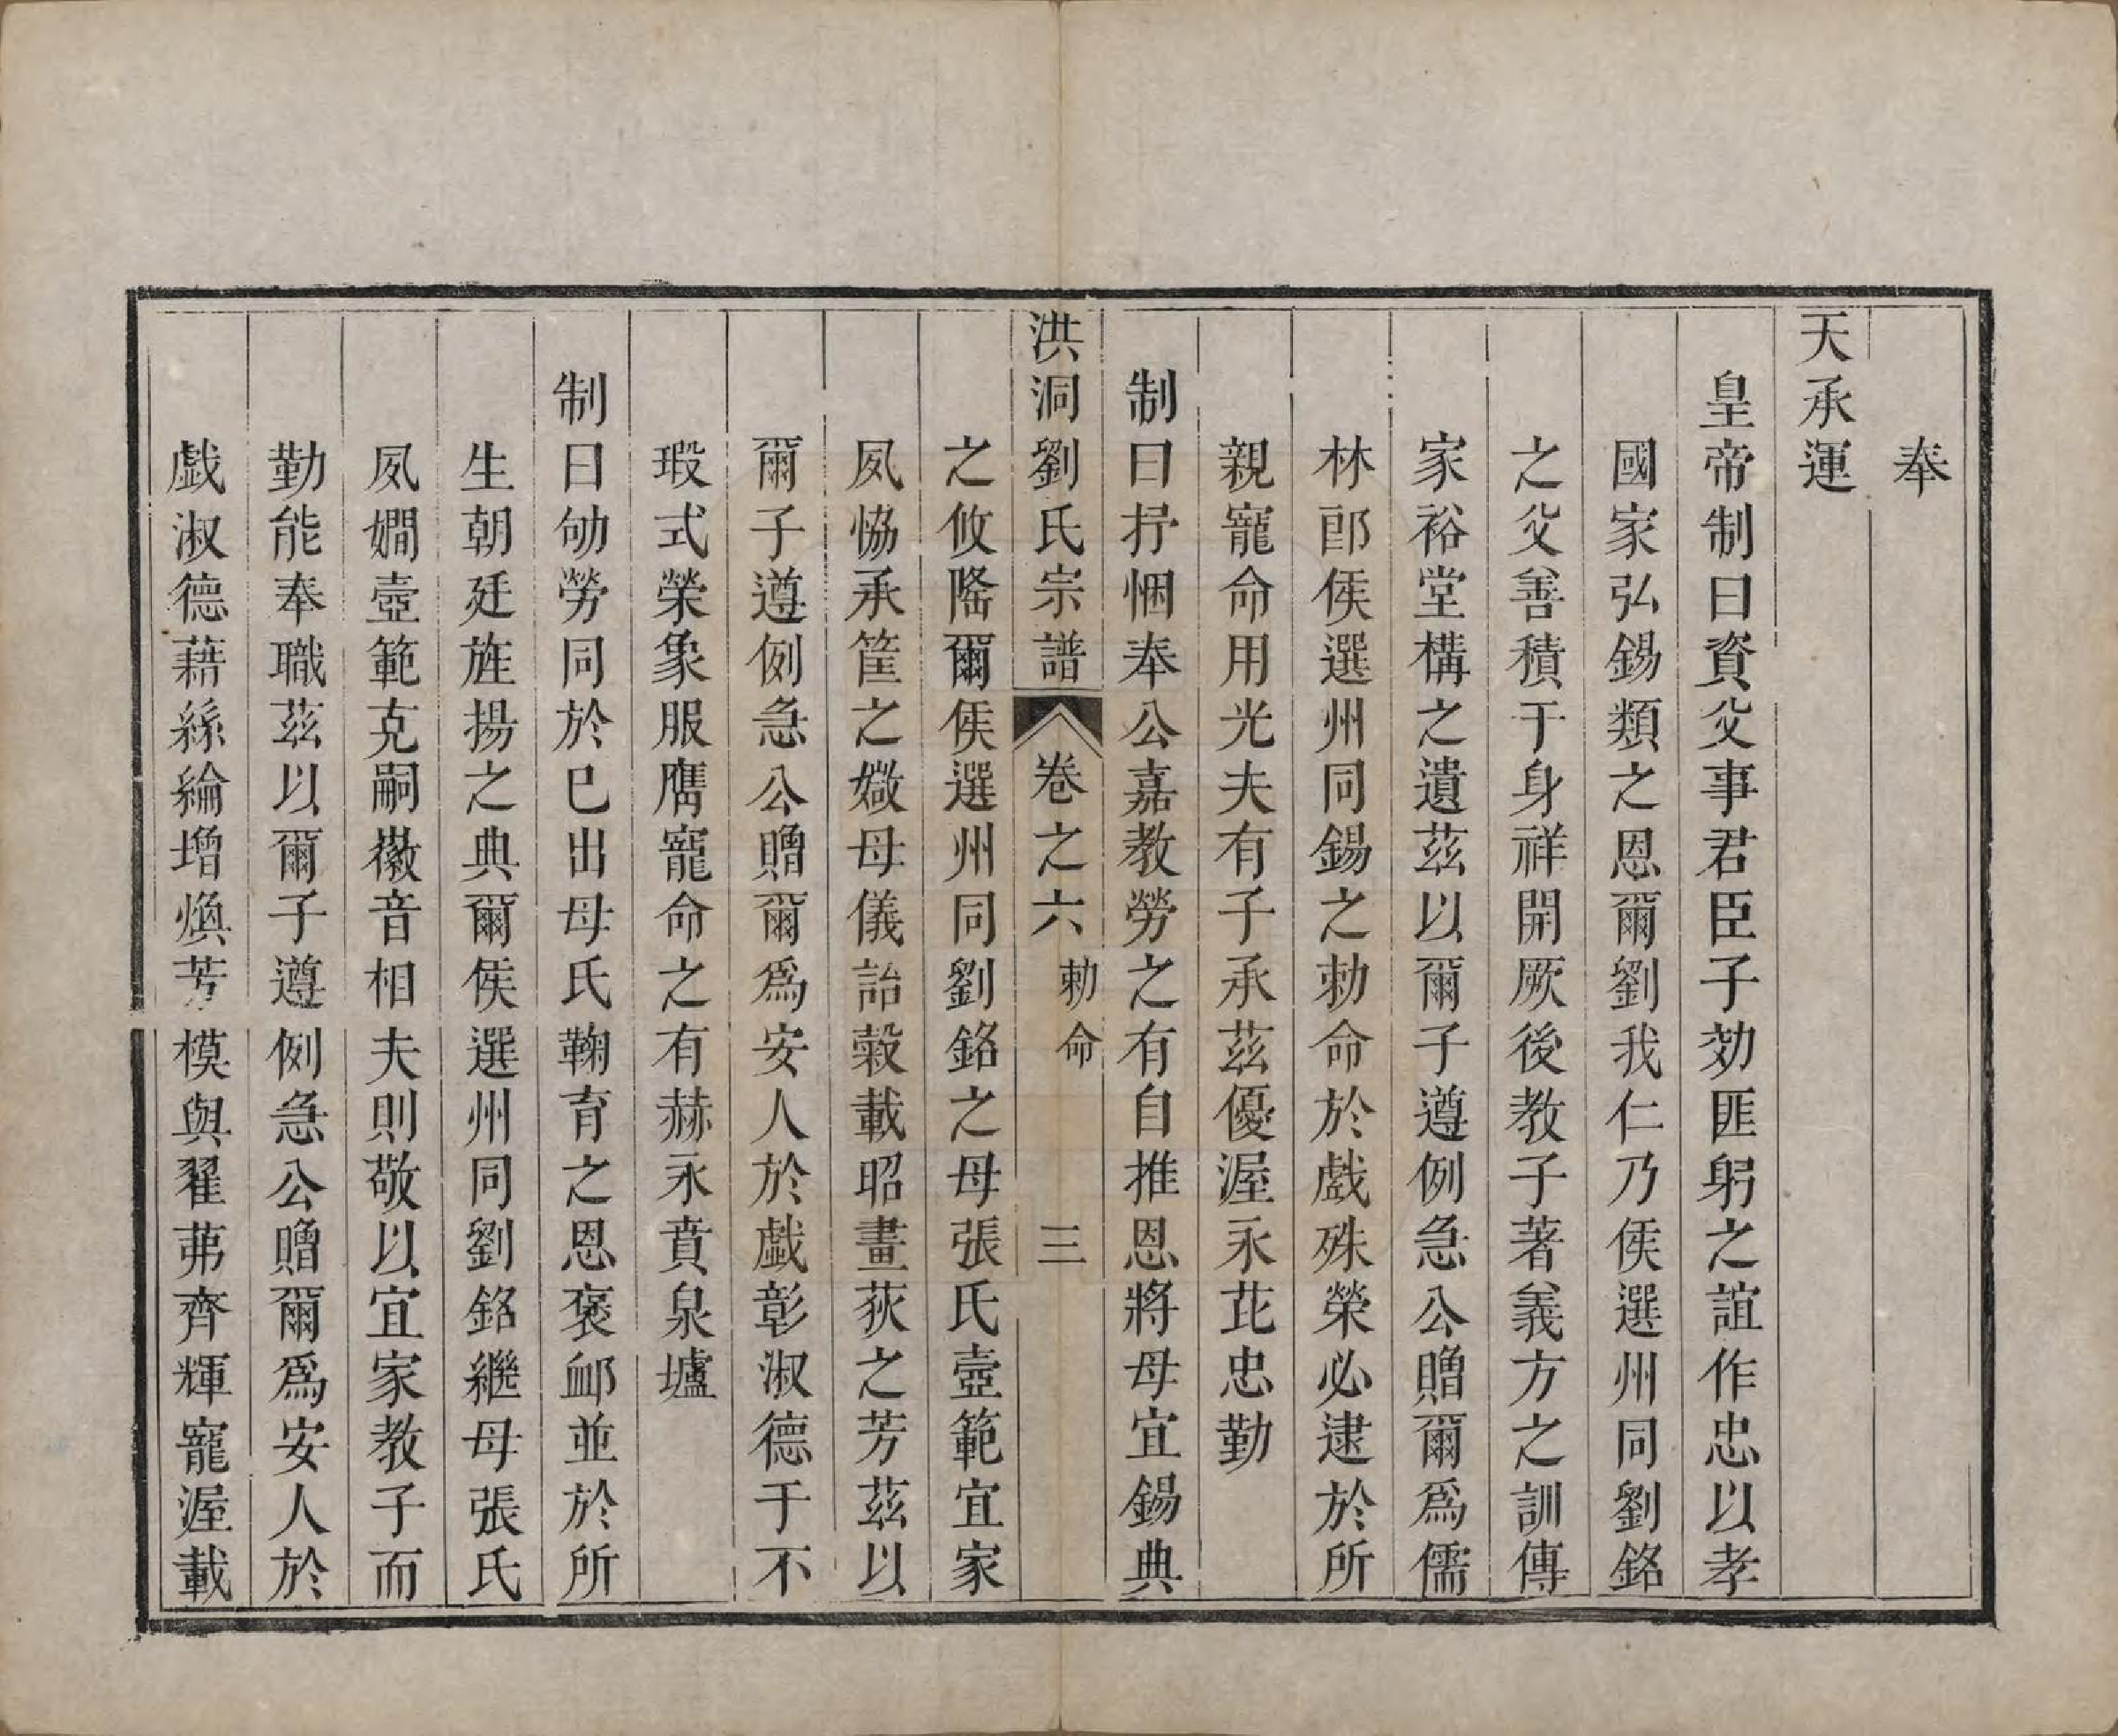 奉
天承運
皇帝制曰資父事君臣子効匪躬之誼作忠以孝
國家弘錫類之恩爾劉我仁乃侯選州同劉銘
之父善積于身祥開厥後教子著義方之訓傳
家裕堂構之遺茲以爾子遵例急公贈爾爲儒
林郎侯選州同錫之勅命於戲殊榮必逮於所
親寵命用光夫有子承茲優渥永芘忠勤
制曰抒悃奉公嘉教勞之有自推恩將母宜錫典
洪洞劉氏宗譜 卷之六 勅命 三
之攸隆爾侯選州同劉銘之母張氏壼範宜家
夙恊承筐之媺母儀詒穀載昭畫荻之芳茲以
爾子遵例急公贈爾爲安人於戲彰淑德于不
瑕式榮象服膺寵命之有赫永賁泉壚
制曰劬勞同於已出母氏鞠育之恩褒䘏並於所
生朝廷旌揚之典爾侯選州同劉銘繼母張氏
夙嫺壼範克嗣徽音相夫則敬以宜家教子而
勤能奉職茲以爾子遵例急公贈爾爲安人於
戯淑德藉絲綸增煥芳模與翟茀齊輝寵渥載